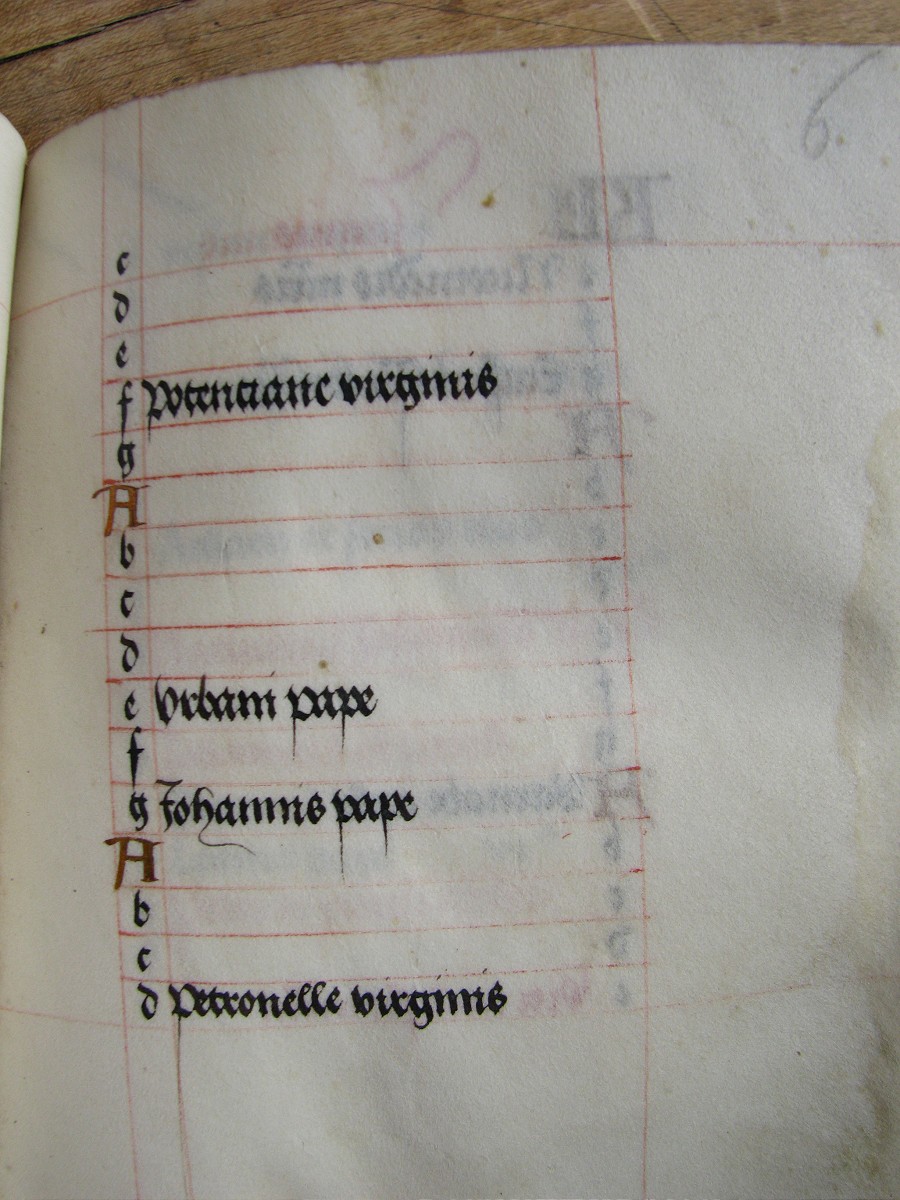 6.
c
d
e
f Potenciane virginis
g
A
b
c
d
e Urbani pape
f
g Johannis pape
A
b
c
d Petronelle virginis